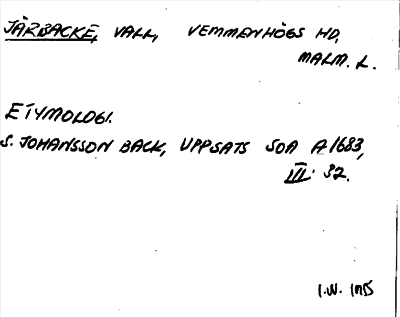 JÄRBACKE, VALL, VEMMENHÖGS HD,
MALM. L.
ETYMOLOGI.
S. JOHANSSON BACK, UPPSATS SOA A1683,
III: 32.
I.W. 1985